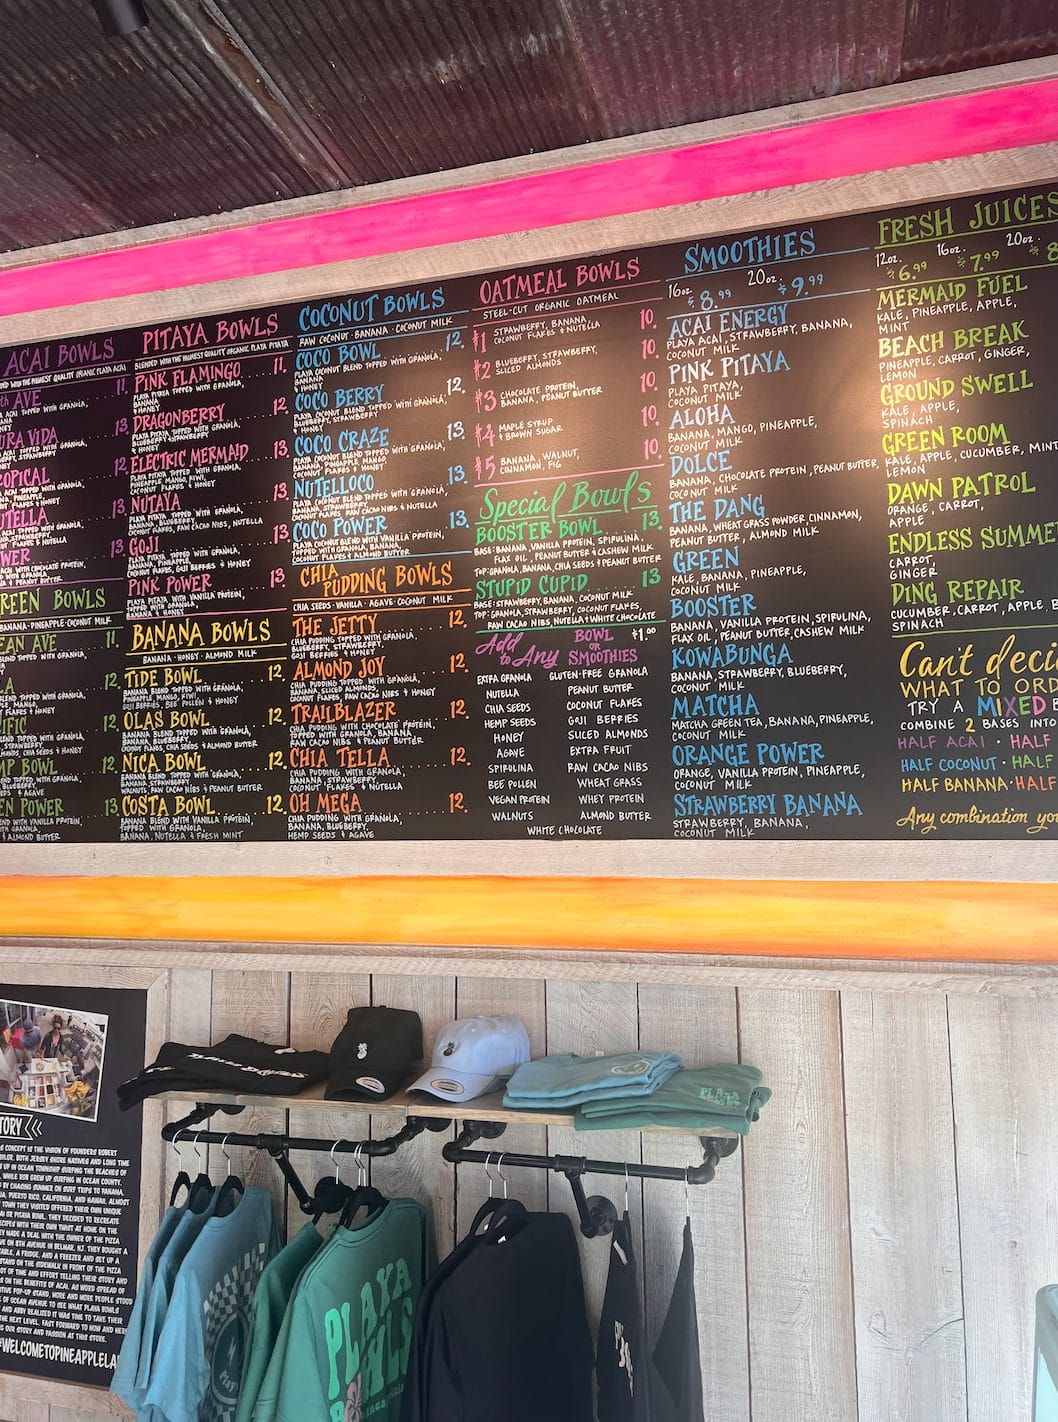 ACAI BOWLS
11.
AVE
URA VIDA 13
OPICAL 12
UTELLA 13
WER 13
& PEANUT BUTTER
REEN BOWLS
BANANA·PINEAPPLE·COCONUT MILK
EAN AVE 11.
12.
IFIC 12.
MP BOWL 12.
EN POWER 13
& ALMOND BUTTER
PITAYA BOWLS
BLENDED WITH THE HIGHEST QUALITY ORGANIC PLAYA PITAYA
PINK FLAMINGO 11.
PLAYA PITAYA TOPPED WITH GRANOLA,
BANANA
& HONEY
DRAGONBERRY 12.
PLAYA PITAYA TOPPED WITH GRANOLA,
BLUEBERRY, STRAWBERRY
& HONEY
ELECTRIC MERMAID 13.
PLAYA PITAYA TOPPED WITH GRANOLA,
PINEAPPLE, MANGO, KIWI,
COCONUT FLAKES & HONEY
NUTAYA 13.
PLAYA PITAYA TOPPED WITH GRANOLA,
BANANA, BLUEBERRY,
COCONUT FLAKES, RAW CACAO NIBS, NUTELLA
GOJI 13.
PLAYA PITAYA TOPPED WITH GRANOLA,
BANANA, PINEAPPLE,
COCONUT FLAKES, GOJI BERRIES & HONEY
PINK POWER 13.
PLAYA PITAYA WITH VANILLA PROTEIN,
TOPPED WITH GRANOLA,
BANANA & HONEY
BANANA BOWLS
BANANA · HONEY · ALMOND MILK
TIDE BOWL 12.
BANANA BLEND TOPPED WITH GRANOLA,
PINEAPPLE, MANGO, KIWI,
GOJI BERRIES, BEE POLLEN & HONEY
OLAS BOWL 12.
BANANA BLEND TOPPED WITH GRANOLA,
BANANA, BLUEBERRY,
COCONUT FLAKES, CHIA SEEDS & ALMOND BUTTER
NICA BOWL 12.
BANANA BLEND TOPPED WITH GRANOLA,
BANANA, STRAWBERRY,
WALNUTS, RAW CACAO NIBS & PEANUT BUTTER
COSTA BOWL 12.
BANANA BLEND WITH VANILLA PROTEIN,
TOPPED WITH GRANOLA,
BANANA, NUTELLA & FRESH MINT
COCONUT BOWLS
RAW COCONUT · BANANA · COCONUT MILK
COCO BOWL 12.
PLAYA COCONUT BLEND TOPPED WITH GRANOLA,
BANANA
& HONEY
COCO BERRY 12.
PLAYA COCONUT BLEND TOPPED WITH GRANOLA,
BLUEBERRY, STRAWBERRY
& HONEY
COCO CRAZE 13.
PLAYA COCONUT BLEND TOPPED WITH GRANOLA,
BANANA, PINEAPPLE, MANGO,
COCONUT FLAKES & HONEY
NUTELLOCO 13.
PLAYA COCONUT BLEND TOPPED WITH GRANOLA,
BANANA, STRAWBERRY,
COCONUT FLAKES, RAW CACAO NIBS & NUTELLA
COCO POWER 13.
PLAYA COCONUT BLEND WITH VANILLA PROTEIN,
TOPPED WITH GRANOLA, BANANA,
COCONUT FLAKES & ALMOND BUTTER
CHIA PUDDING BOWLS
CHIA SEEDS · VANILLA · AGAVE · COCONUT MILK
THE JETTY 12.
CHIA PUDDING TOPPED WITH GRANOLA,
BLUEBERRY, STRAWBERRY,
GOJI BERRIES & HONEY
ALMOND JOY 12.
CHIA PUDDING TOPPED WITH GRANOLA,
BANANA, SLICED ALMONDS,
COCONUT FLAKES, RAW CACAO NIBS & HONEY
TRAILBLAZER 12.
CHIA PUDDING WITH CHOCOLATE PROTEIN,
TOPPED WITH GRANOLA, BANANA,
RAW CACAO NIBS & PEANUT BUTTER
CHIA TELLA 12.
CHIA PUDDING WITH GRANOLA,
BANANA, STRAWBERRY,
COCONUT FLAKES & NUTELLA
OH MEGA 12.
CHIA PUDDING WITH GRANOLA,
BANANA, BLUEBERRY,
HEMP SEEDS & AGAVE
OATMEAL BOWLS
STEEL-CUT ORGANIC OATMEAL
#1 STRAWBERRY, BANANA, 10.
COCONUT FLAKES & NUTELLA
#2 BLUEBERRY, STRAWBERRY, 10.
SLICED ALMONDS
#3 CHOCOLATE PROTEIN, 10.
BANANA, PEANUT BUTTER
#4 MAPLE SYRUP 10.
& BROWN SUGAR
#5 BANANA, WALNUT, 10.
CINNAMON, FIG
Special Bowls
BOOSTER BOWL 13.
BASE: BANANA, VANILLA PROTEIN, SPIRULINA,
FLAX OIL, PEANUT BUTTER & CASHEW MILK
TOP: GRANOLA, BANANA, CHIA SEEDS & PEANUT BUTTER
STUPID CUPID 13
BASE: STRAWBERRY, BANANA, COCONUT MILK
TOP: GRANOLA, STRAWBERRY, COCONUT FLAKES,
RAW CACAO NIBS, NUTELLA & WHITE CHOCOLATE
Add to Any BOWL OR SMOOTHIES $1.00
EXTRA GRANOLA GLUTEN-FREE GRANOLA
NUTELLA PEANUT BUTTER
CHIA SEEDS COCONUT FLAKES
HEMP SEEDS GOJI BERRIES
HONEY SLICED ALMONDS
AGAVE EXTRA FRUIT
SPIRULINA RAW CACAO NIBS
BEE POLLEN WHEAT GRASS
VEGAN PROTEIN WHEY PROTEIN
WALNUTS ALMOND BUTTER
WHITE CHOCOLATE
SMOOTHIES
16oz. $8.99 20oz. $9.99
ACAI ENERGY
PLAYA ACAI, STRAWBERRY, BANANA,
COCONUT MILK
PINK PITAYA
PLAYA PITAYA,
COCONUT MILK
ALOHA
BANANA, MANGO, PINEAPPLE,
COCONUT MILK
DOLCE
BANANA, CHOCOLATE PROTEIN, PEANUT BUTTER,
COCONUT MILK
THE DANG
BANANA, WHEAT GRASS POWDER, CINNAMON,
PEANUT BUTTER, ALMOND MILK
GREEN
KALE, BANANA, PINEAPPLE,
COCONUT MILK
BOOSTER
BANANA, VANILLA PROTEIN, SPIRULINA,
FLAX OIL, PEANUT BUTTER, CASHEW MILK
KOWABUNGA
BANANA, STRAWBERRY, BLUEBERRY,
COCONUT MILK
MATCHA
MATCHA GREEN TEA, BANANA, PINEAPPLE,
COCONUT MILK
ORANGE POWER
ORANGE, VANILLA PROTEIN, PINEAPPLE,
COCONUT MILK
STRAWBERRY BANANA
STRAWBERRY, BANANA,
COCONUT MILK
FRESH JUICES
12oz. 16oz. 20oz.
$6.99 $7.99 $8
MERMAID FUEL
KALE, PINEAPPLE, APPLE,
MINT
BEACH BREAK
PINEAPPLE, CARROT, GINGER,
LEMON
GROUND SWELL
KALE, APPLE,
SPINACH
GREEN ROOM
KALE, APPLE, CUCUMBER, MINT
LEMON
DAWN PATROL
ORANGE, CARROT,
APPLE
ENDLESS SUMMER
CARROT,
GINGER
DING REPAIR
CUCUMBER, CARROT, APPLE, B
SPINACH
Can't deci
WHAT TO ORD
TRY A MIXED B
COMBINE 2 BASES INTO
HALF ACAI · HALF
HALF COCONUT · HALF
HALF BANANA · HALF
Any combination you
TORY
CONCEPT IS THE VISION OF FOUNDERS ROBERT
BOTH JERSEY SHORE NATIVES AND LONG TIME
UP IN OCEAN TOWNSHIP SURFING THE BEACHES OF
WHILE ROB GREW UP SURFING IN OCEAN COUNTY.
BY CHASING SUMMER ON SURF TRIPS TO PANAMA,
PUERTO RICO, CALIFORNIA, AND HAWAII. ALMOST
TOWN THEY VISITED OFFERED THEIR OWN UNIQUE
OR PITAYA BOWL. THEY DECIDED TO RECREATE
RECIPES WITH THEIR OWN TWIST AT HOME ON THE
MADE A DEAL WITH THE OWNER OF THE PIZZA
ON 8TH AVENUE IN BELMAR, NJ. THEY BOUGHT A
TABLE, A FRIDGE, AND A FREEZER AND SET UP A
STAND ON THE SIDEWALK IN FRONT OF THE PIZZA
OT OF TIME AND EFFORT TELLING THEIR STORY AND
ON THE BENEFITS OF ACAI. AS WORD SPREAD OF
POP-UP STAND, MORE AND MORE PEOPLE STOOD
OF OCEAN AVENUE TO SEE WHAT PLAYA BOWLS
AND ABBY REALIZED IT WAS TIME TO TAKE THEIR
THE NEXT LEVEL. FAST FORWARD TO NOW AND HERE
OUR STORY AND PASSION AT THIS STORE.
#WELCOMETOPINEAPPLELA
PLAYA
PLAYA
BOWLS